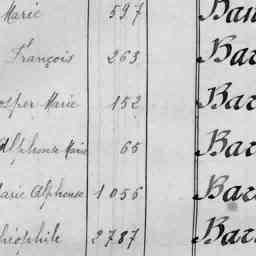 Marie 597 Ban
François 263 Bar
osper Marie 152 Bar
Alphonse Marie 65 Bar
Marie Alphonse 1 056 Bar
héophile 2 787 Bar